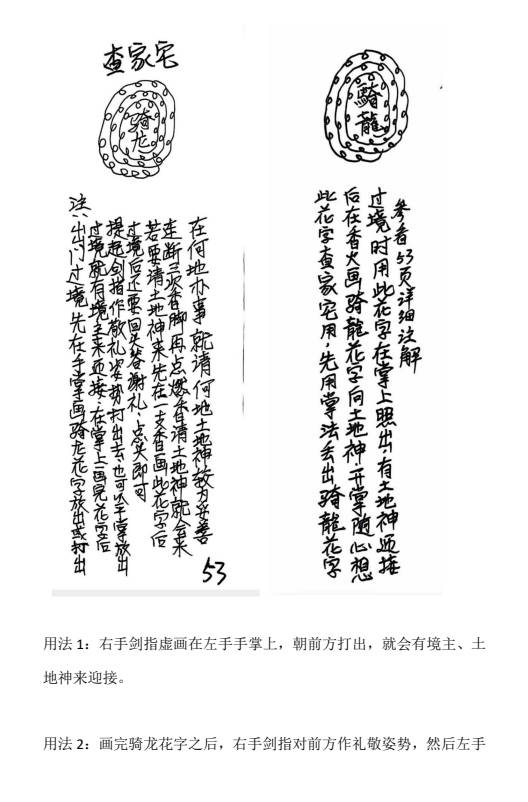 查家宅
骑龙
注:出门过境先在手掌画骑龙花字放出或打出
过境就有境主来迎接.在掌上画完花字后
提起剑指作敬礼姿势打出去也可以手掌放出
过境后还要回头答谢礼,点头即可
若要请土地神来先在一支香画此花字后
走断三次香脚再点燃香请土地神就会来
在何地办事就请何地土地神较为妥善
53
騎龍
此花字查家宅用,先用掌法丢出騎龍花字
后在香火画騎龍花字向土地神.开掌随心想
过境时用此花字在掌上照出,有土地神迎接
参看53页详细注解
用法1：右手剑指虚画在左手手掌上，朝前方打出，就会有境主、土
地神来迎接。
用法2：画完骑龙花字之后，右手剑指对前方作礼敬姿势，然后左手